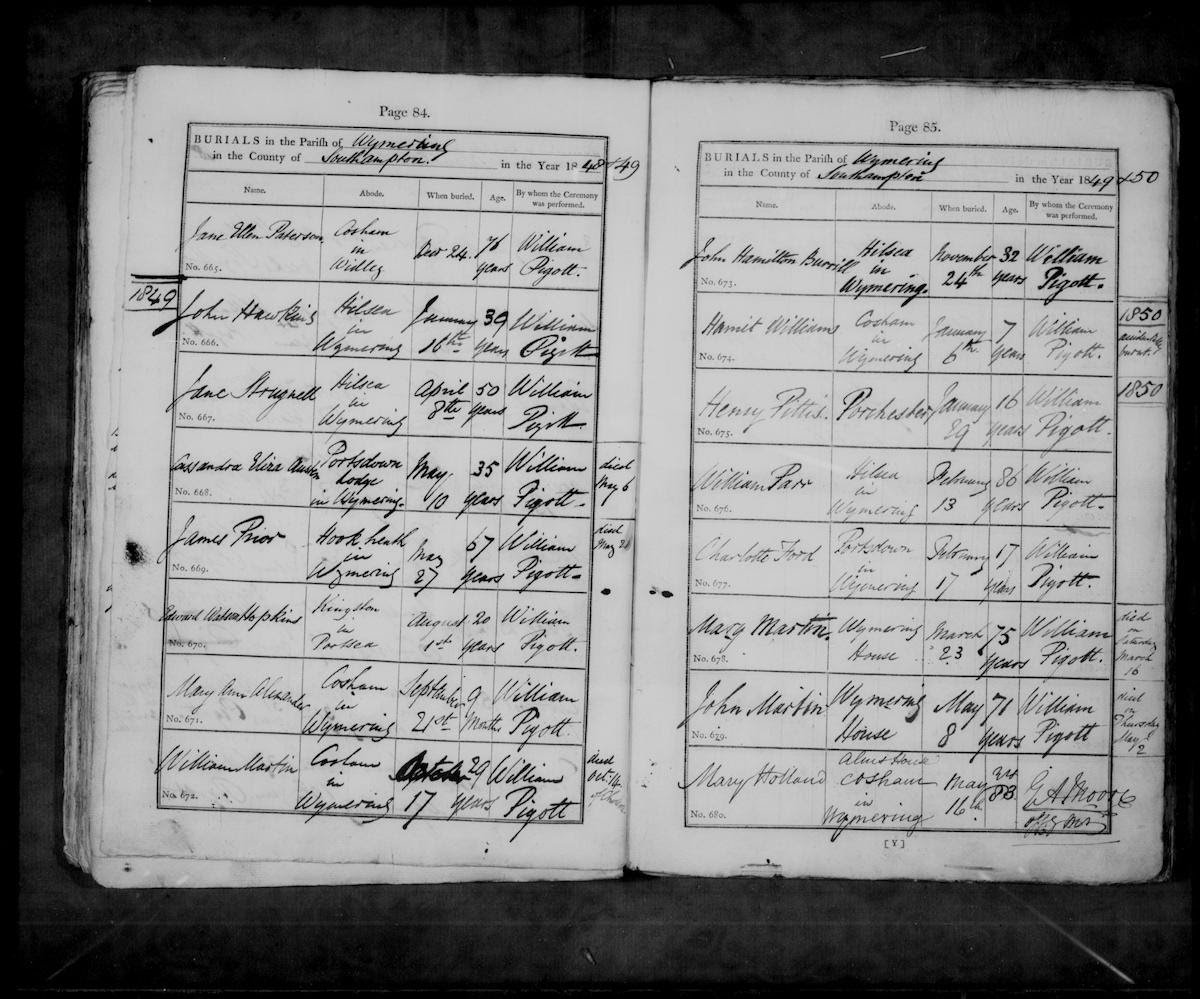 Page 84.
BURIALS in the Parish of Wymering
in the County of Southampton. in the Year 18 48 & 49
Name. Abode. When buried. Age. By whom the Ceremony
was performed.
Jane Ellen Paterson Cosham in Widley Decr 24. 76 years William Pigott.
No. 665.
1849
John Hawkins Hilsea in Wymering January 16th 39 years William Pigott
No. 666.
Jane Strugnell Hilsea in Wymering April 8th 50 years William Pigott
No. 667.
Cassandra Eliza Austin Portsdown Lodge in Wymering. May 10 35 years William Pigott. died May 6
No. 668.
James Prior Hook heath in Wymering May 27 67 years William Pigott. died May 21
No. 669.
Edward Watson Hopkins Kingston in Portsea August 1st 20 years William Pigott.
No. 670.
Mary Ann Alexander Cosham in Wymering September 21st 9 Months William Pigott.
No. 671.
William Martin Cosham in Wymering October 17 29 years William Pigott died Oct. 14 of
No. 672.
Page 85.
BURIALS in the Parish of Wymering
in the County of Southampton in the Year 1849 & 50
Name. Abode. When buried. Age. By whom the Ceremony
was performed.
John Hamilton Burrill Hilsea in Wymering. November 24th 32 years William Pigott.
No. 673.
1850
Harriet Williams Cosham in Wymering January 6th 7 years William Pigott. accidentally burnt.
No. 674.
1850
Henry Pittis. Porchester January 29 16 years William Pigott.
No. 675.
William Parr Hilsea in Wymering February 13 86 years William Pigott.
No. 676.
Charlotte Ford Portsdown in Wymering February 17 17 years William Pigott.
No. 677.
Mary Martin. Wymering House March 23 75 years William Pigott. died on Saturday March 16
No. 678.
John Martin Wymering House May 8 71 years William Pigott died on Thursday May 2
No. 679.
Mary Holland Alms House Cosham in Wymering May 16th 83 G A Moore
No. 680.
[Y]